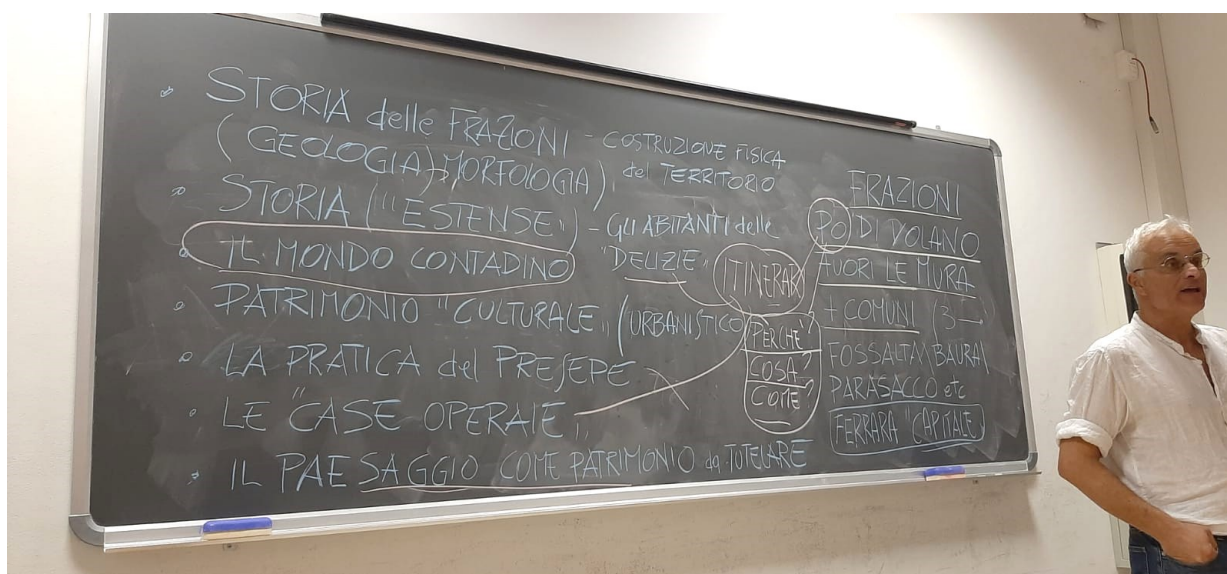 • STORIA delle FRAZIONI - COSTRUZIONE FISICA
(GEOLOGIA) MORFOLOGIA) del TERRITORIO
• STORIA ("ESTENSE") - GLI ABITANTI delle
• IL MONDO CONTADINO "DELIZIE"
• PATRIMONIO "CULTURALE" (URBANISTICO
• LA PRATICA del PRESEPE
• LE "CASE OPERAIE"
• IL PAESAGGIO COME PATRIMONIO da TUTELARE
ITINERARI
PERCHE'?
COSA?
COME?
FRAZIONI
PO DI VOLANO
FUORI LE MURA
+ COMUNI (3 →
FOSSALTA (BAURA)
PARASACCO etc
FERRARA "CAPITALE